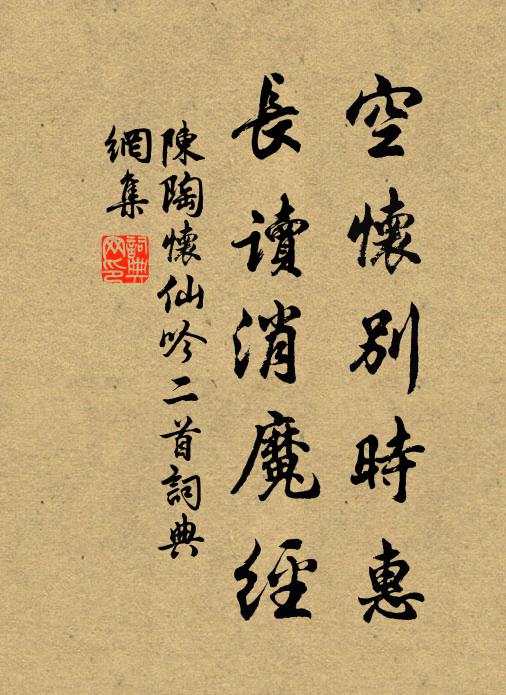 空懷別時惠
長讀消魔經
陳陶懷仙吟二首詞典
網集
詞典
网印